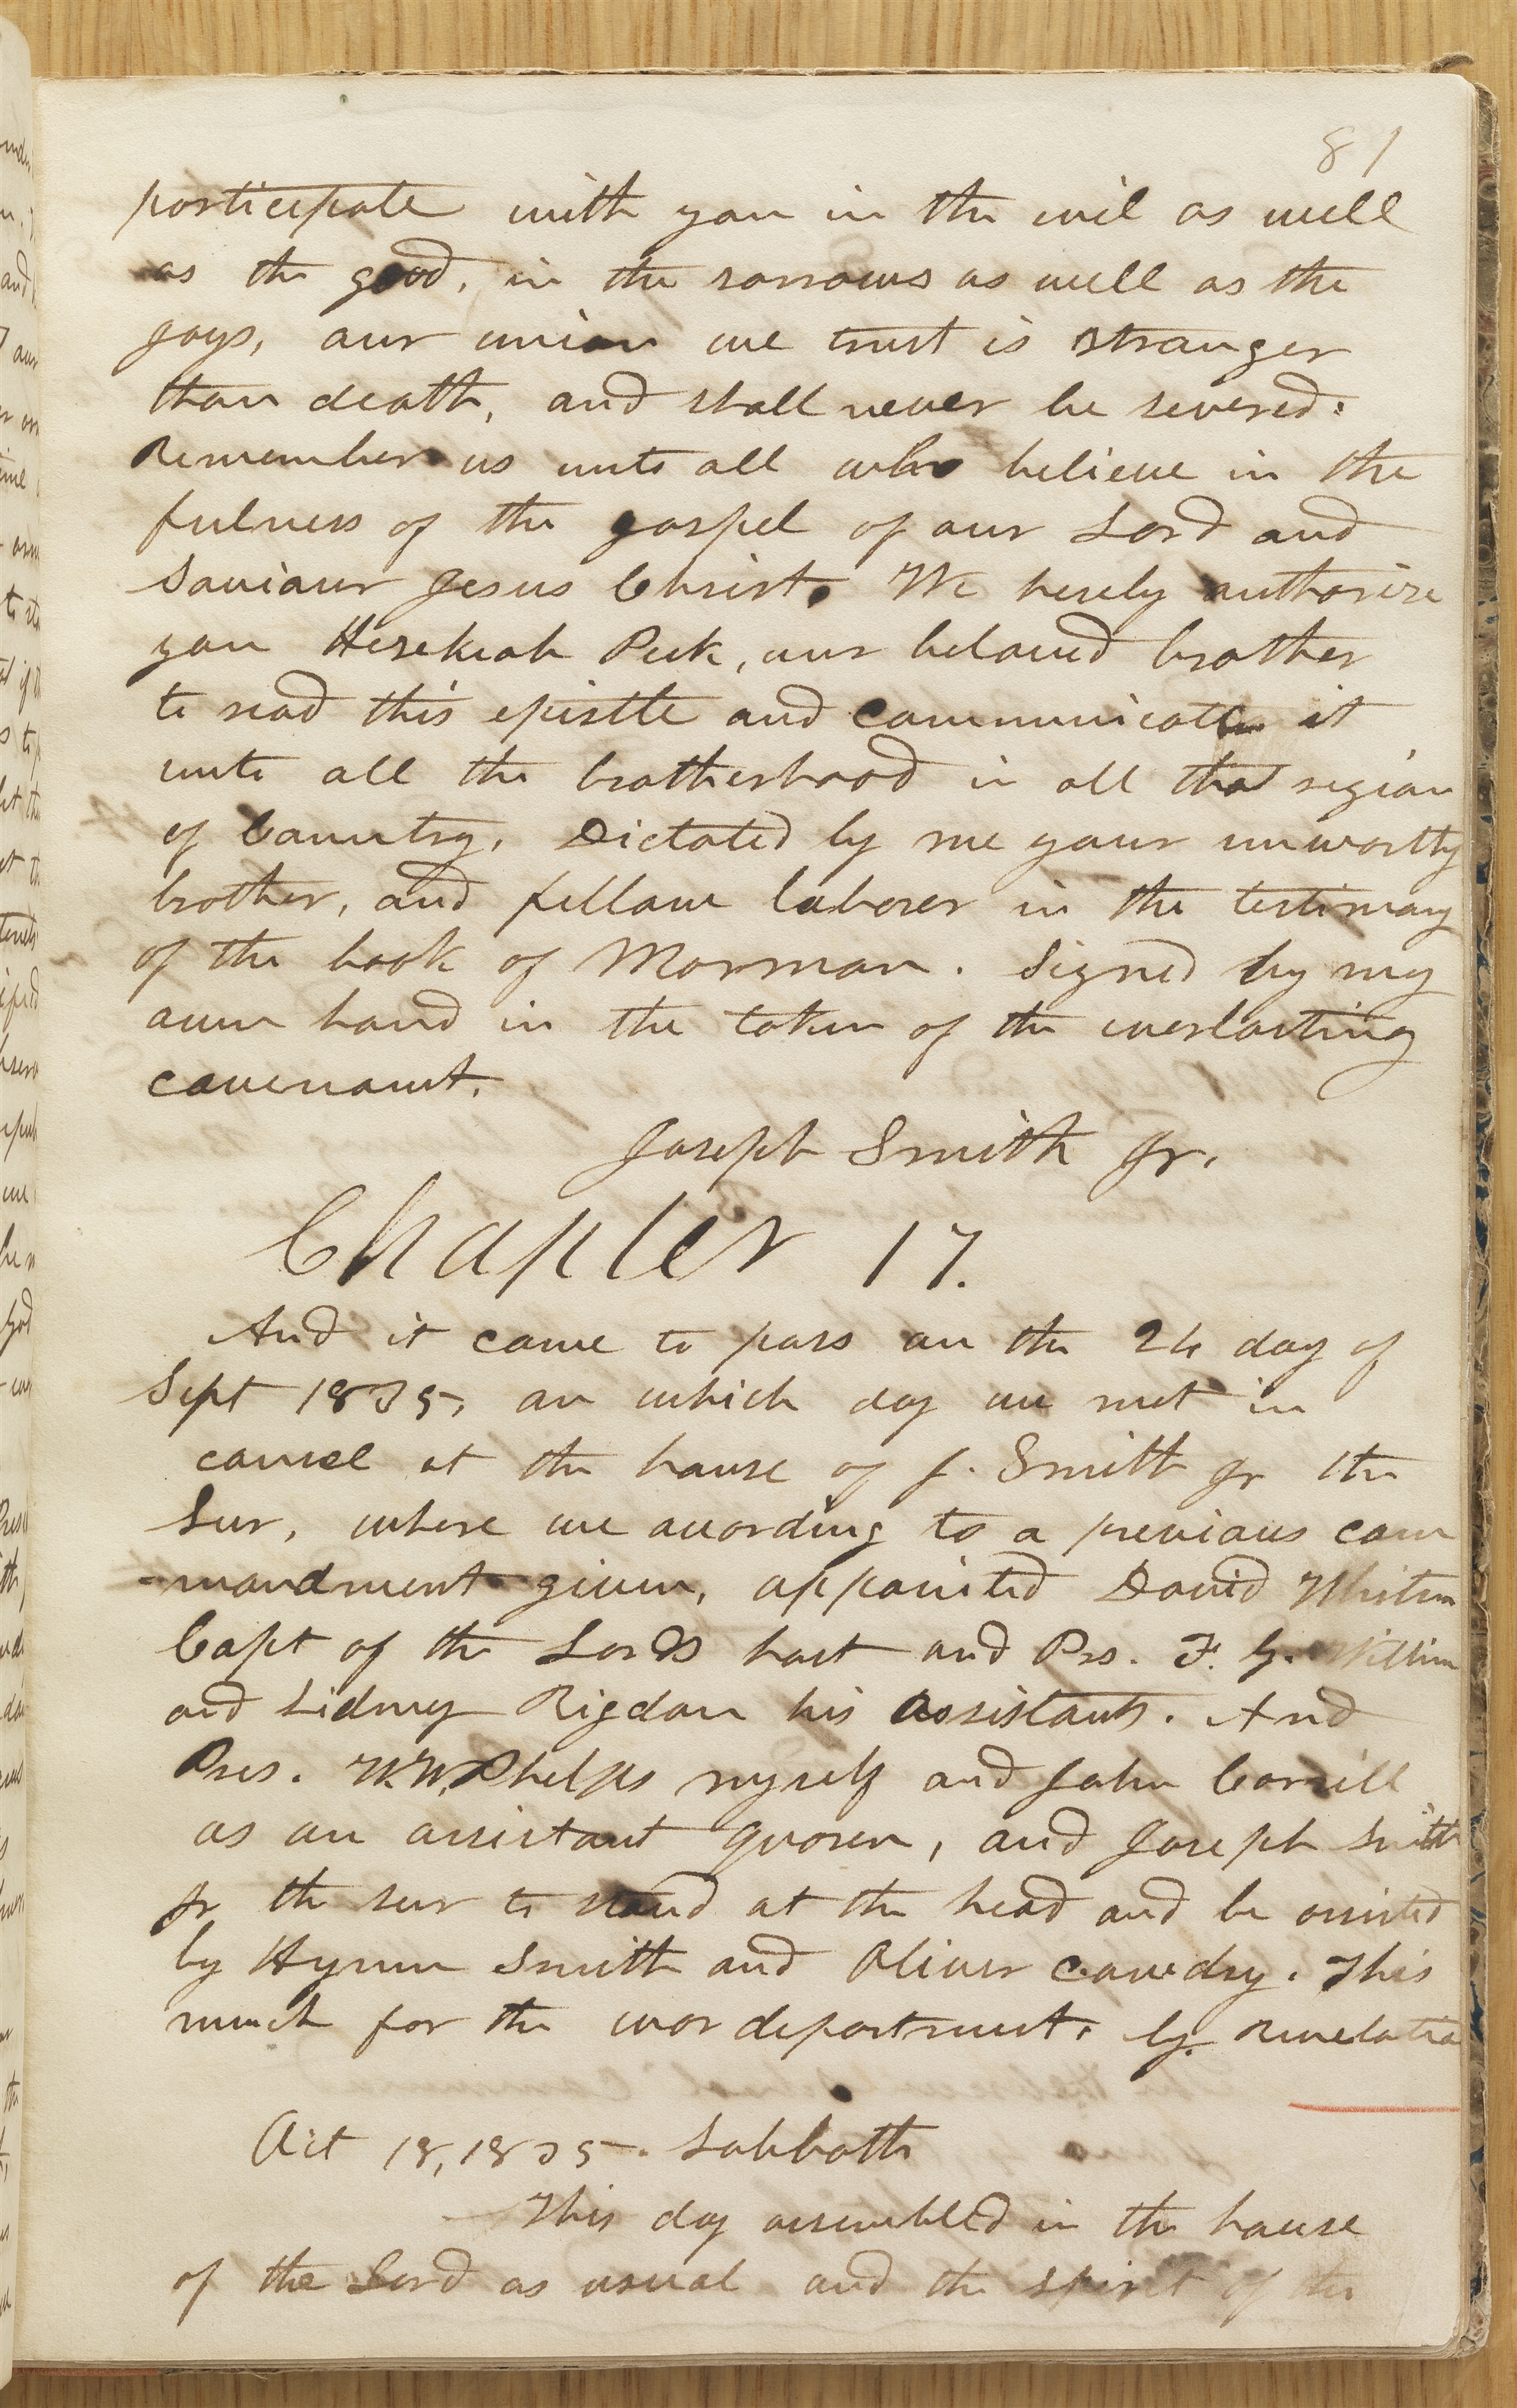 81
participate with you in the evil as well
as the good, in the sorrows as well as the
joys, our union we trust is stronger
than death, and shall never be severed.
Remember us unto all who believe in the
fulness of the gospel of our Lord and
Saviour Jesus Christ. We hereby authorize
you Hezekiah Peck, our beloved brother
to read this epistle and communicate it
unto all the brotherhood in all that region
of Country, Dictated by me your unworthy
brother, and fellow laborer in the testimony
of the book of Mormon. Signed by my
own hand in the token of the everlasting
covenant.
Joseph Smith Jr.
Chapter 17.
And it came to pass on the 24 day of
Sept 1835, on which day we met in
councel at the house of J. Smith Jr the
Seer, where we according to a previous com
-mandment given, appointed David Whitm
Capt of the Lords host and Prs. F. G. William
and Sidney Rigdon his assistants. And
Pres. W. W. Phelps myself and John Corrill
as an assistant quorem, and Joseph Smith
Jr the seer to stand at the head and be assisted
by Hyrum Smith and Oliver Cowdry. This
much for the war department, by revelatio
Oct 18, 1835. Sabbath
This day assembled in the house
of the Lord as usual and the spirit of the